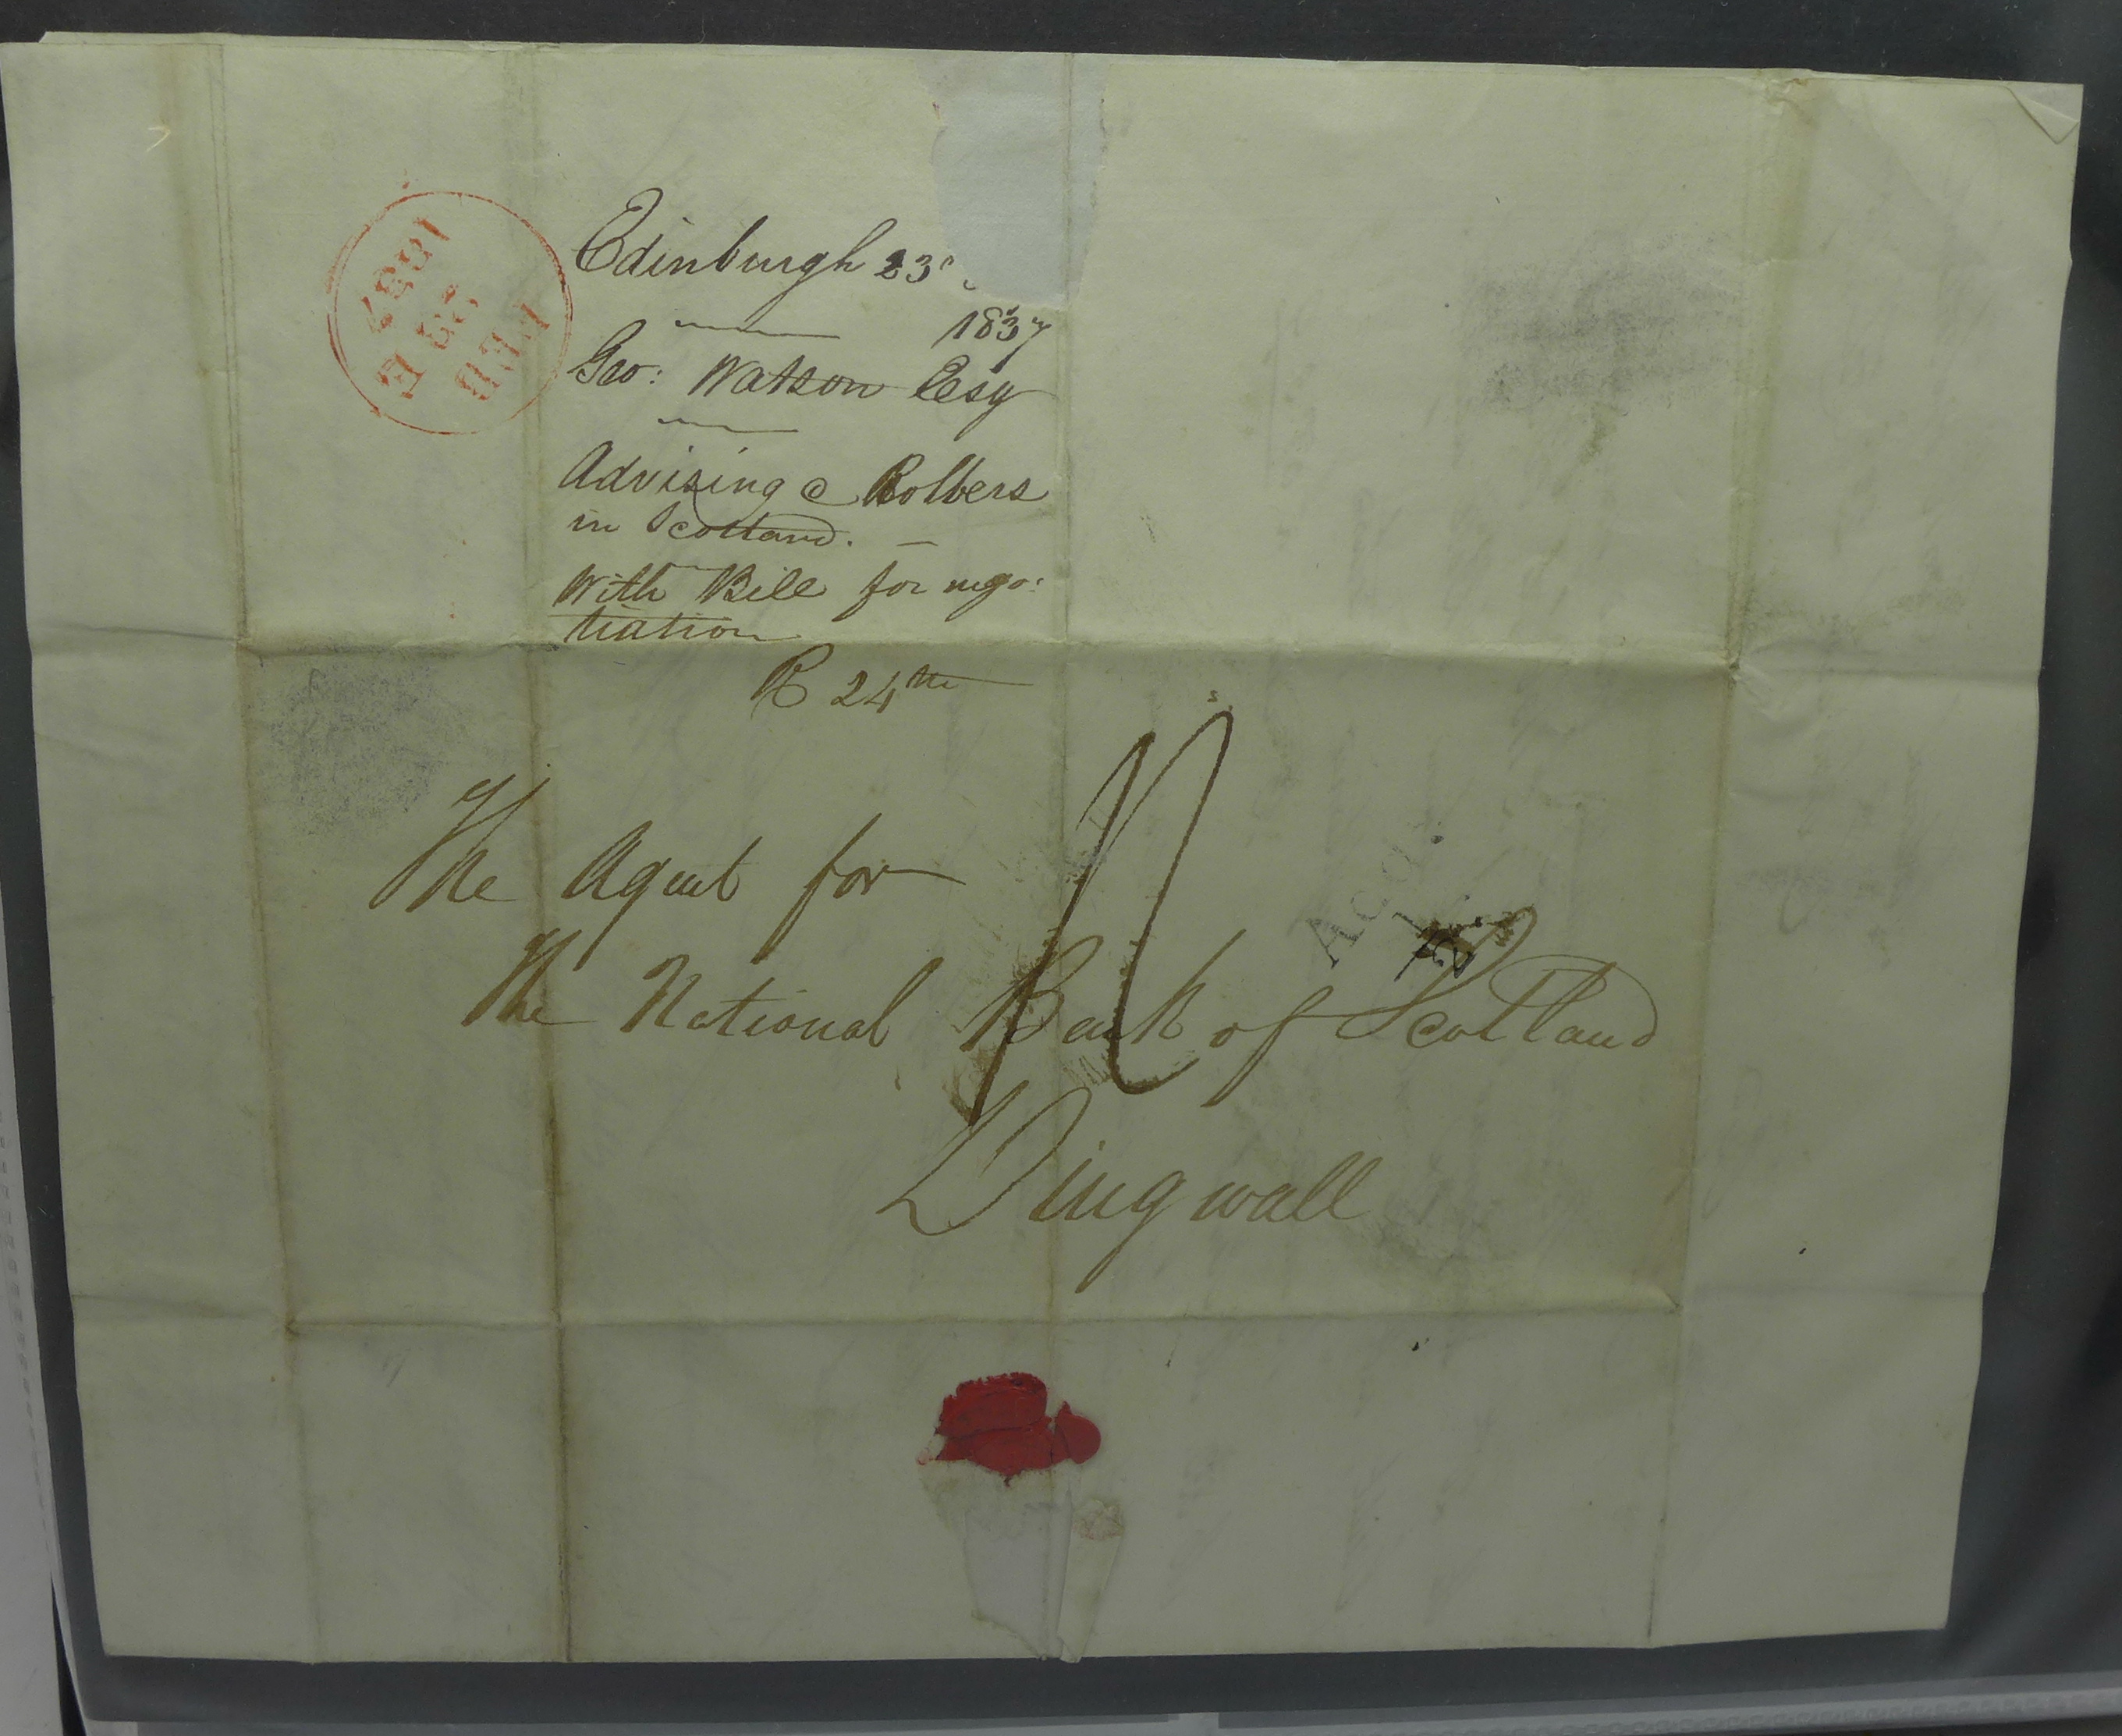 Edinburgh 23
1837
Geo: Watson Esq
Advising @ Robbers
in Scotland. —
With Bill for nego:
tiation
R 24th
FEB
23 E
1837
The Agent for
The National Bank of Scotland
Dingwall